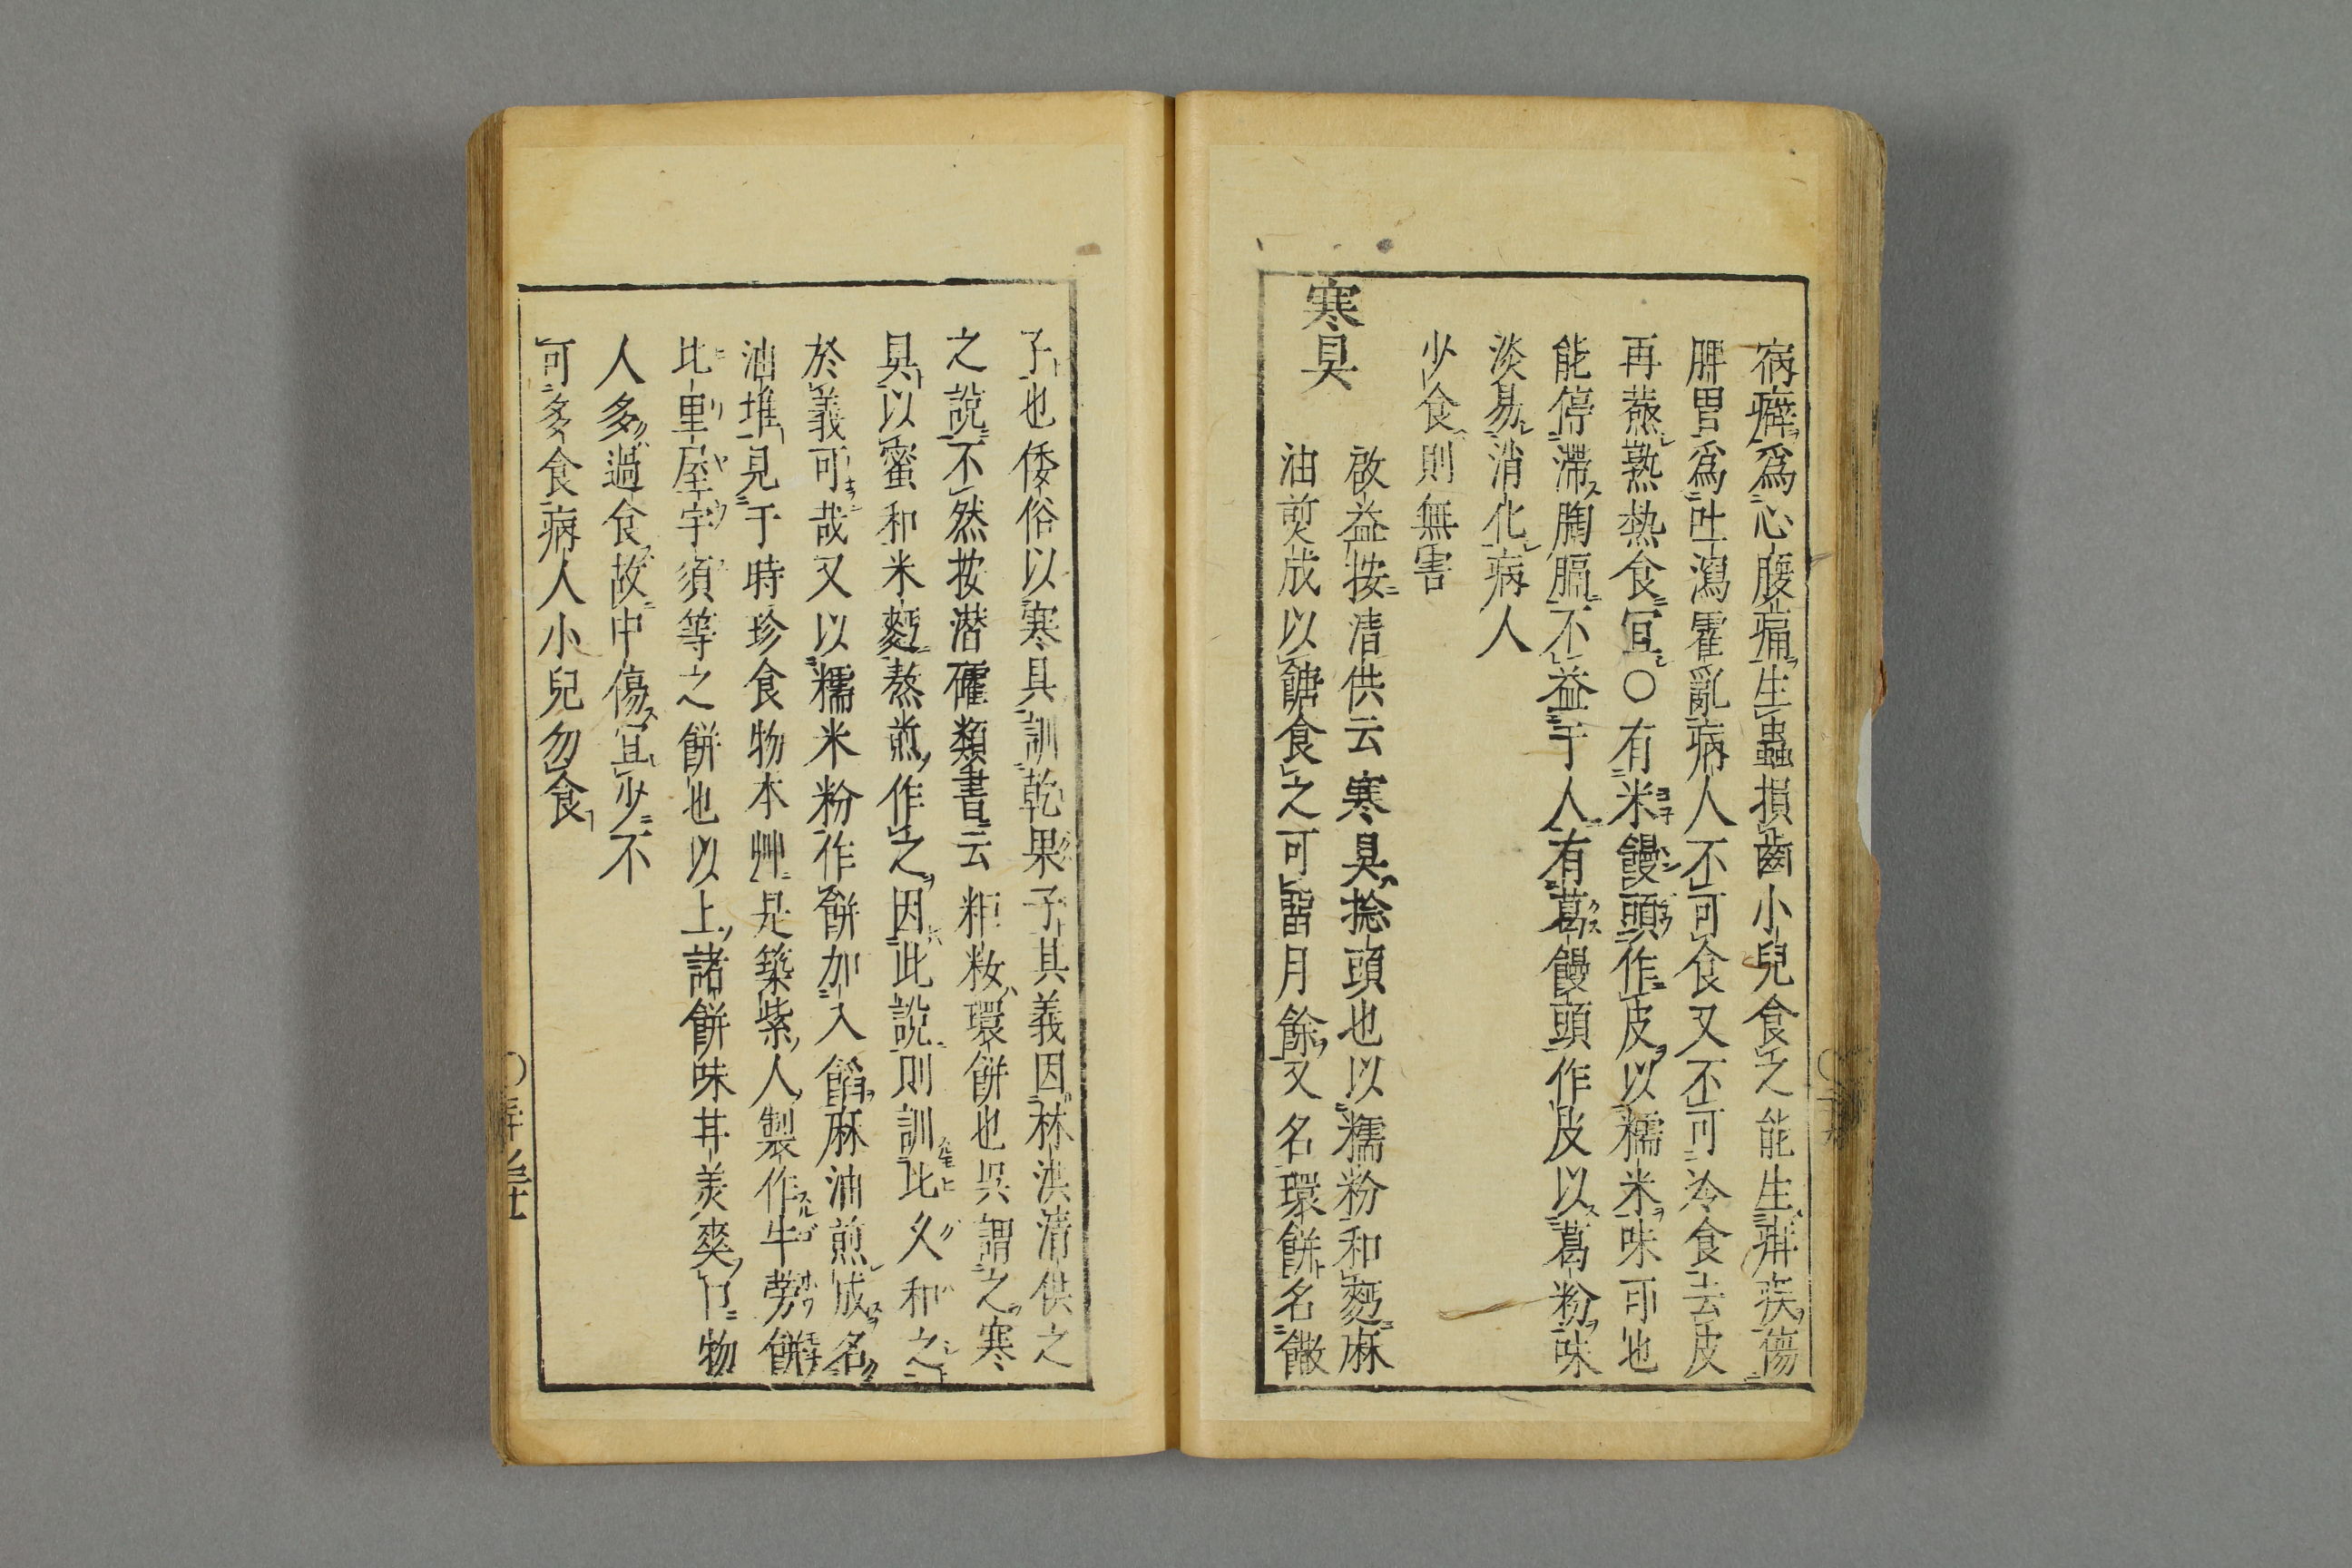 病癖爲心腹痛生蟲損齒小兒食之能生疳疾傷
脾胃爲吐瀉霍亂病人不可食又不可冷食去皮
再蒸熟熱食宜○有米饅頭作皮以糯米味可也
能停滯胸膈不益于人有葛饅頭作皮以葛粉味
淡易消化病人
少食則無害
寒具
啟益按清供云寒具捻頭也以糯粉和麪麻
油煎成以餹食之可留月餘又名環餅名饊
子也倭俗以寒具訓乾果子其義因林洪清供之
之說不然按潜確類書云粔籹環餅也吳謂之寒
具以蜜和米麪熬煎作之因此說則訓比久和之
於義可哉又以糯米粉作餅加入餡麻油煎成名
油堆見于時珍食物本艸是築紫人製作牛蒡餅
比里屋宇須等之餅也以上諸餅味甘美爽口物
人多過食故中傷宜少不
可多食病人小兒勿食